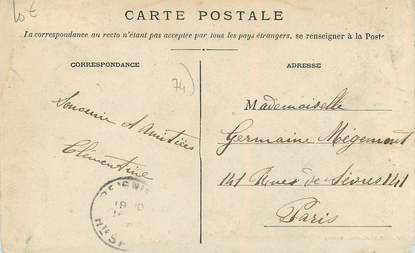 10€
CARTE POSTALE
La correspondance au recto n'étant pas acceptée par tous les pays étrangers, se renseigner à la Poste
CORRESPONDANCE
ADRESSE
74)
Souvenir et Amitiées
Clémentine
Mademoiselle
Germaine Mégemont
141 Rue de Sèvres 141
Paris